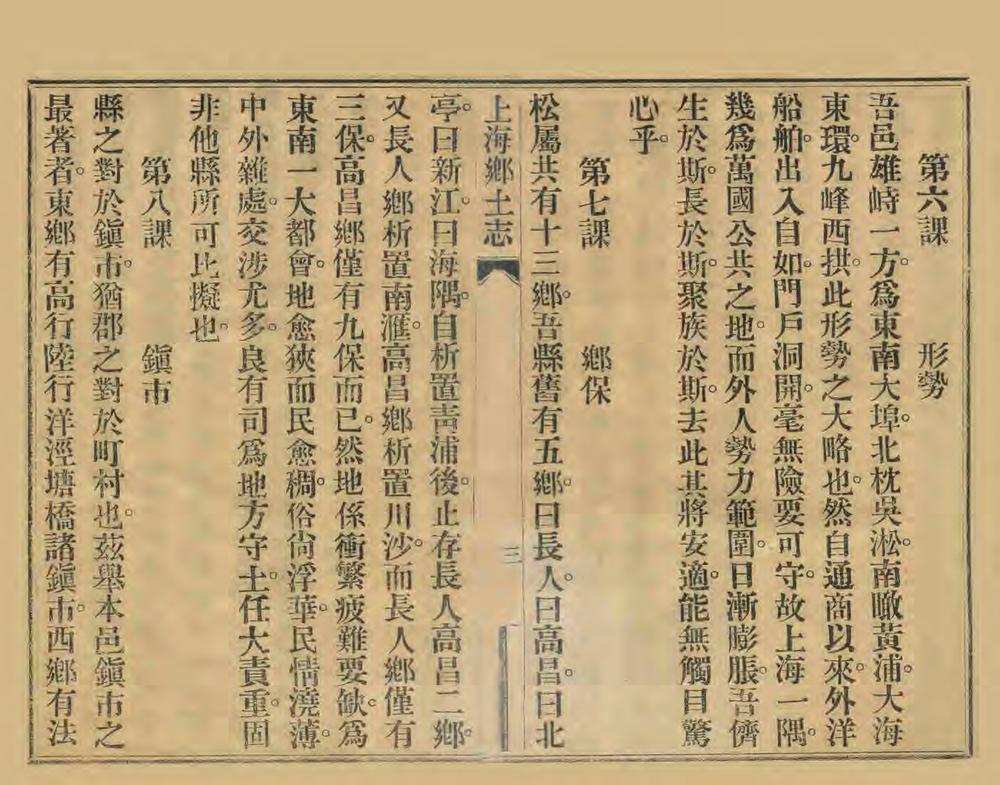 第六課　形勢
吾邑雄峙一方。爲東南大埠。北枕吳淞。南瞰黃浦。大海
東環。九峰西拱。此形勢之大略也。然自通商以來。外洋
船舶。出入自如。門戶洞開。毫無險要可守。故上海一隅。
幾爲萬國公共之地。而外人勢力範圍。日漸膨脹。吾儕
生於斯。長於斯。聚族於斯。去此其將安適。能無觸目驚
心乎。
第七課　鄉保
松屬共有十三鄉。吾縣舊有五鄉。曰長人。曰高昌。曰北
上海鄉土志　三
亭。曰新江。曰海隅。自析置靑浦後。止存長人高昌二鄉。
又長人鄉析置南滙。高昌鄉析置川沙。而長人鄉僅有
三保。高昌鄉僅有九保而已。然地係衝繁疲難要缺。爲
東南一大都會。地愈狹而民愈稠。俗尙浮華。民情澆薄。
中外雜處。交涉尤多。良有司爲地方守土。任大責重。固
非他縣所可比擬也。
第八課　鎭市
縣之對於鎭市。猶郡之對於町村也。茲舉本邑鎭市之
最著者。東鄉有高行陸行洋涇塘橋諸鎭市。西鄉有法